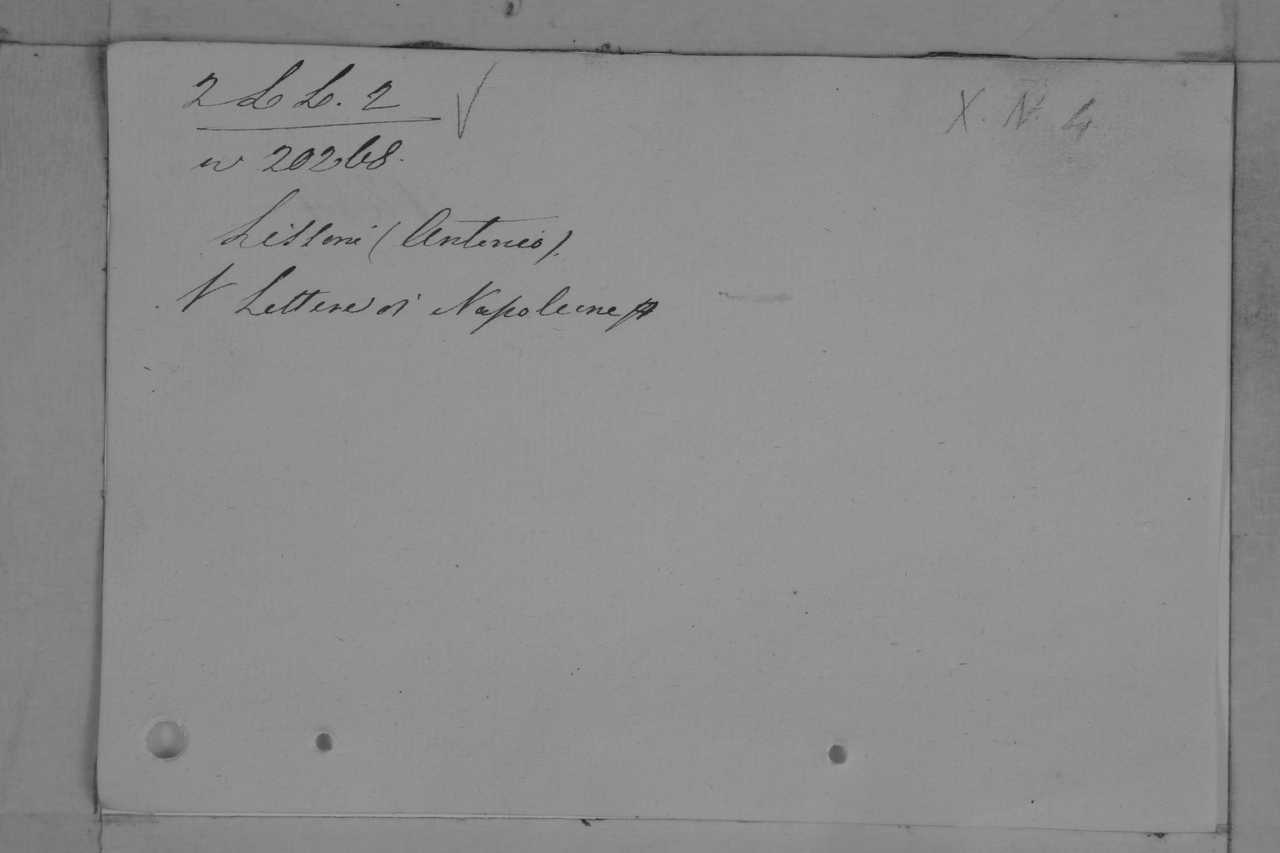 2 L L. 2
X. N. 4
n 20268.
Lissoni (Antonio).
Lettere di Napoleone